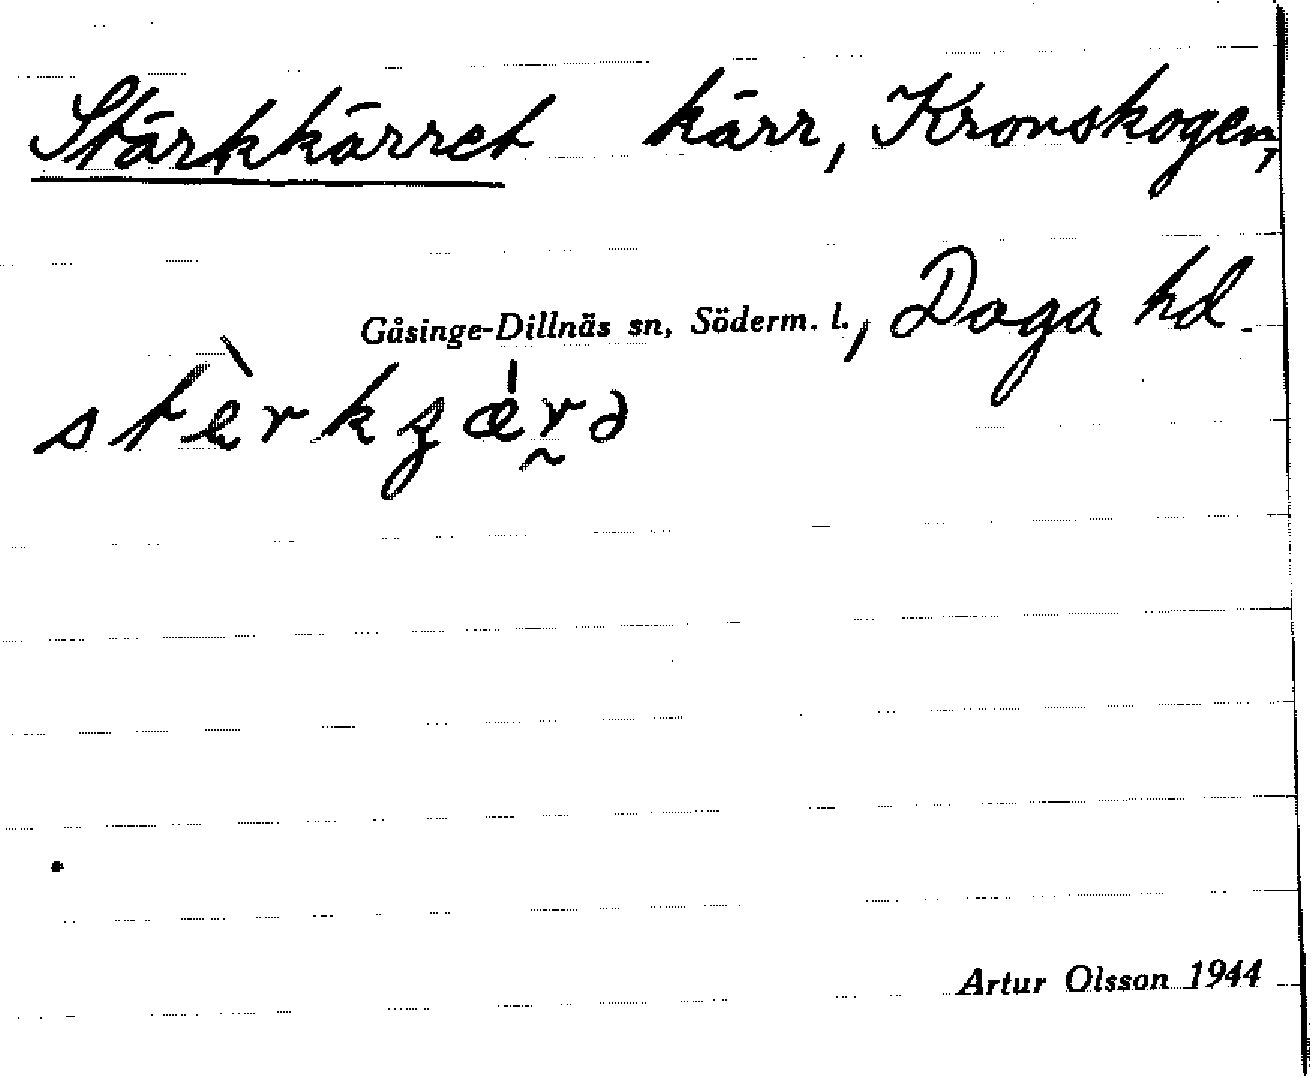 Stärkkärret kärr, Kronskogen,
Gåsinge-Dillnäs sn, Söderm. l., Daga hd.
Artur Olsson 1944